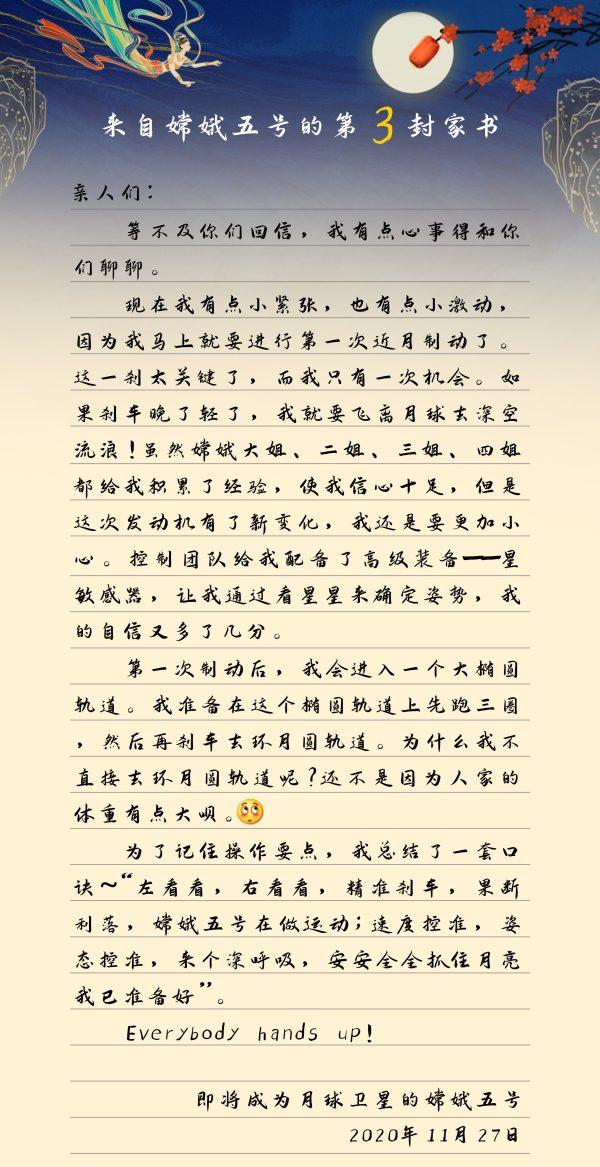 来自嫦娥五号的第3封家书
亲人们：
等不及你们回信，我有点心事得和你
们聊聊。
现在我有点小紧张，也有点小激动，
因为我马上就要进行第一次近月制动了。
这一刹太关键了，而我只有一次机会。如
果刹车晚了轻了，我就要飞离月球去深空
流浪！虽然嫦娥大姐、二姐、三姐、四姐
都给我积累了经验，使我信心十足，但是
这次发动机有了新变化，我还是要更加小
心。控制团队给我配备了高级装备——星
敏感器，让我通过看星星来确定姿势，我
的自信又多了几分。
第一次制动后，我会进入一个大椭圆
轨道。我准备在这个椭圆轨道上先跑三圈
，然后再刹车去环月圆轨道。为什么我不
直接去环月圆轨道呢？还不是因为人家的
体重有点大呗。
为了记住操作要点，我总结了一套口
诀～“左看看，右看看，精准刹车，果断
利落，嫦娥五号在做运动；速度控准，姿
态控准，来个深呼吸，安安全全抓住月亮
我已准备好”。
Everybody hands up!
即将成为月球卫星的嫦娥五号
2020年11月27日